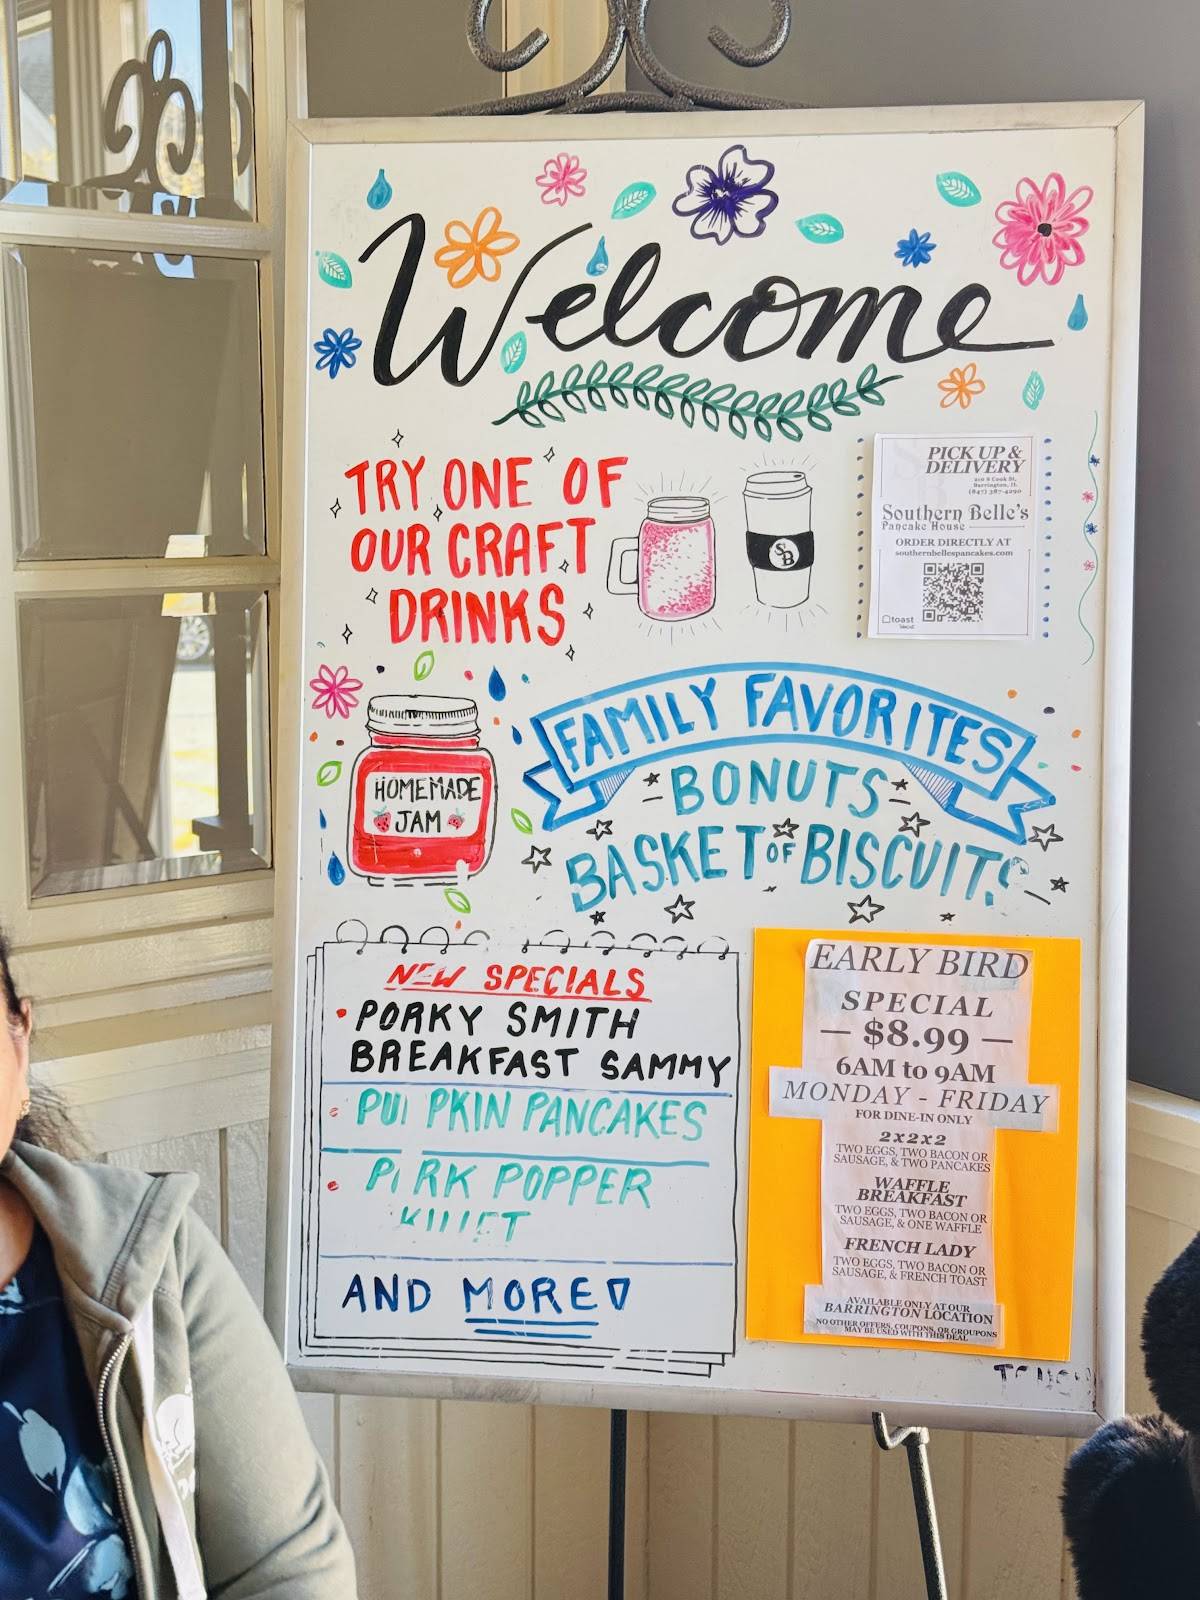 Welcome
TRY ONE OF
OUR CRAFT
DRINKS
SB
PICK UP &
DELIVERY
Barrington, IL
(847) 387-4290
Southern Belle's
Pancake House
ORDER DIRECTLY AT
southernbellespancakes.com
toast
HOMEMADE
JAM
FAMILY FAVORITES
- BONUTS -
BASKET OF BISCUITS
NEW SPECIALS
• PORKY SMITH
BREAKFAST SAMMY
• PU PKIN PANCAKES
• P RK POPPER
AND MORE
EARLY BIRD
SPECIAL
— $8.99 —
6AM to 9AM
MONDAY - FRIDAY
FOR DINE-IN ONLY
2x2x2
TWO EGGS, TWO BACON OR
SAUSAGE, & TWO PANCAKES
WAFFLE
BREAKFAST
TWO EGGS, TWO BACON OR
SAUSAGE, & ONE WAFFLE
FRENCH LADY
TWO EGGS, TWO BACON OR
SAUSAGE, & FRENCH TOAST
AVAILABLE ONLY AT OUR
BARRINGTON LOCATION
NO OTHER OFFERS, COUPONS, OR GROUPONS
MAY BE USED WITH THIS DEAL